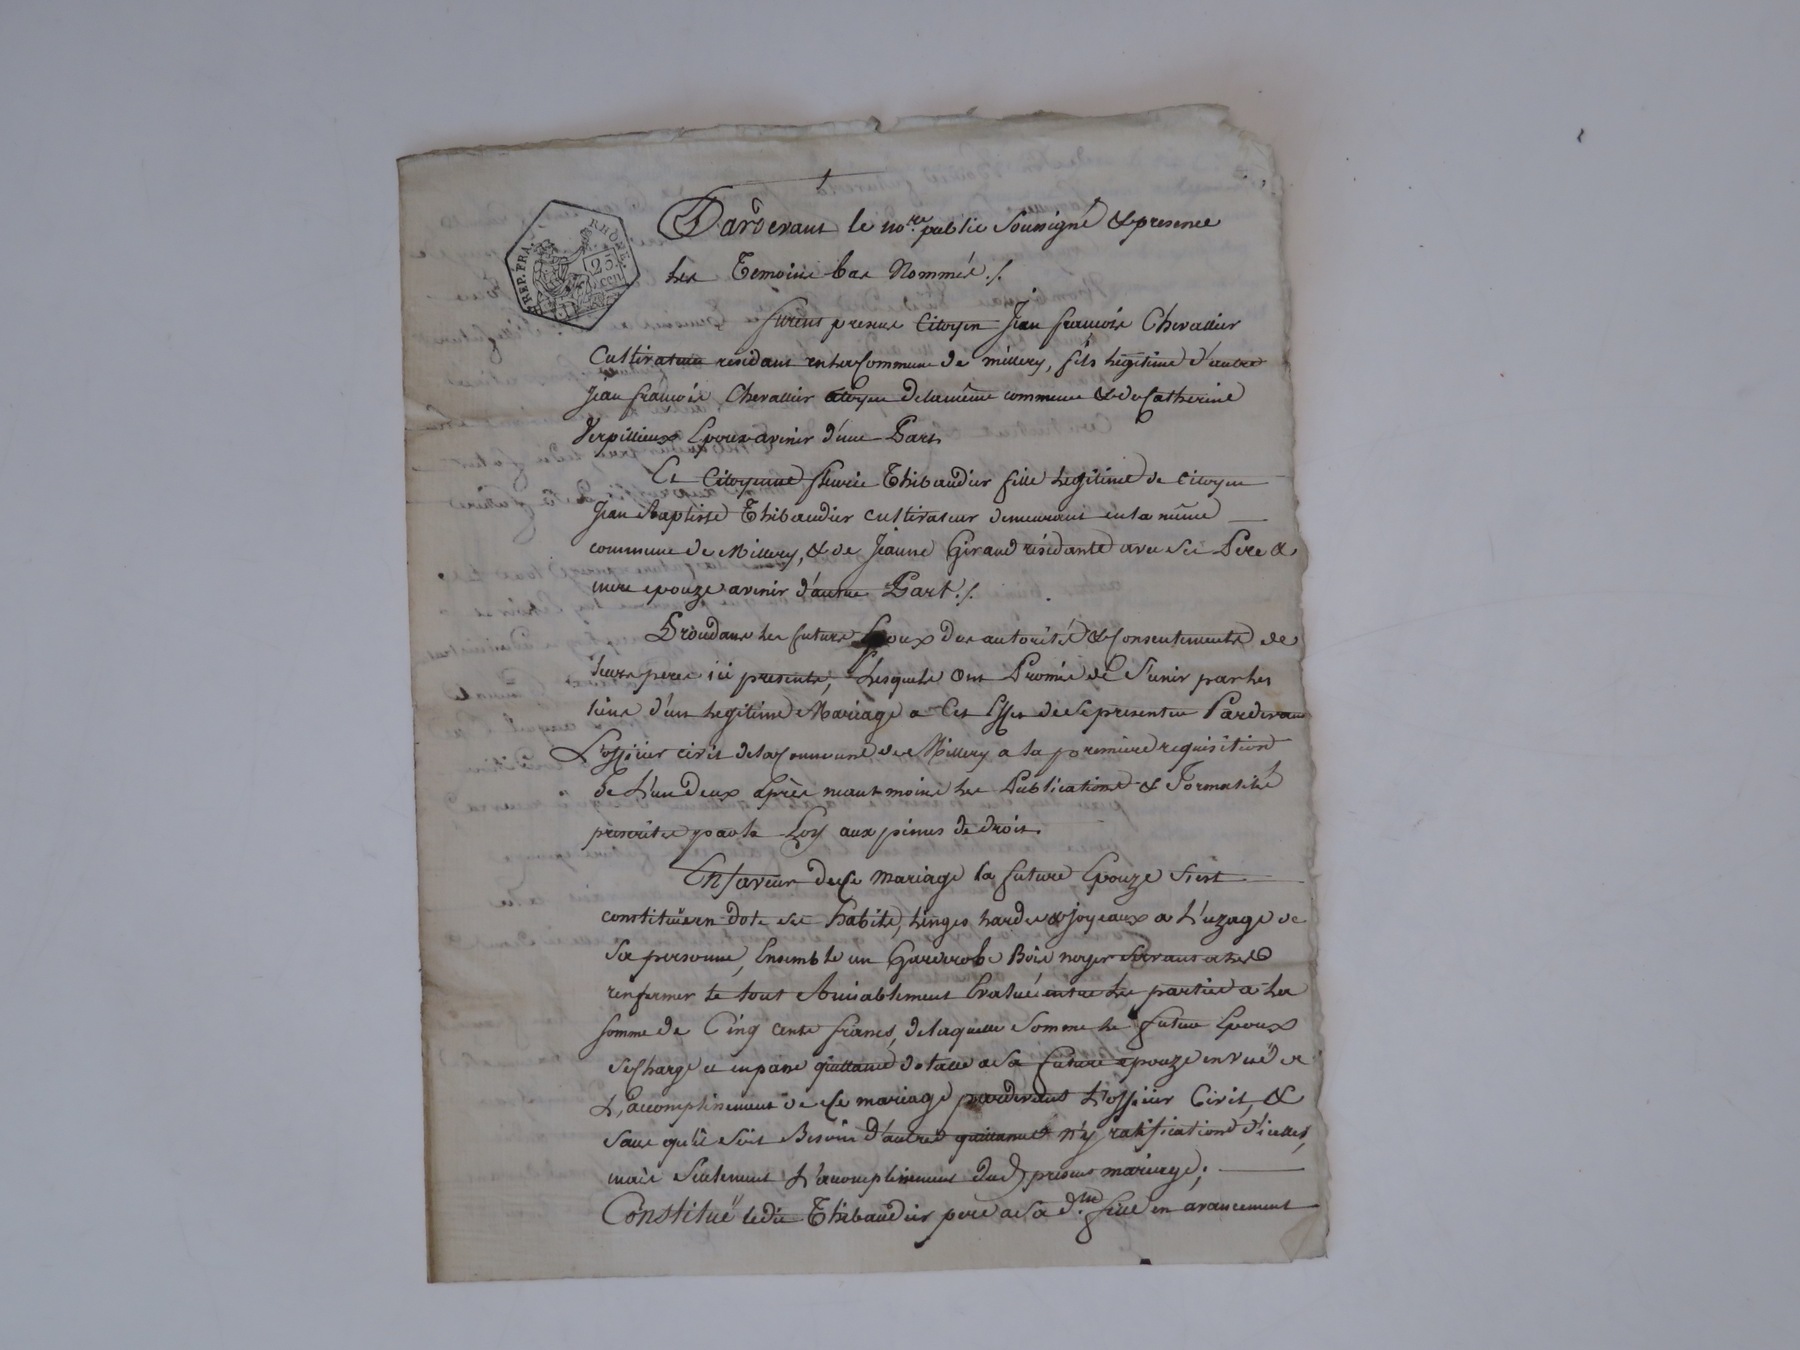 REP. FRA. RHONE
25 cen
Pardevant le no.re public soussigné & presence
des Temoins bas Nommés ./.
furent presens Citoyen Jean françois Chevallier
Cultivateur residant en la Commune de millery, fils legitime d'autre
Jean françois Chevallier citoyen de la même commune & de Catherine
Verpillieux Epoux avenir d'une Part
Et Citoyenne fleurie Thibaudier fille legitime de Citoyen
Jean Baptiste Thibaudier cultivateur demeurant en la même
commune de Millery, & de Jeanne Giraud résidante avec ses Pere &
mere epouze avenir d'autre Part ./.
Procedans les futurs Epoux des autorités & Consentements de
leurs peres ici presents, Lesquels Ont Promis de S'unir par les
liens d'un legitime Mariage a Cet Effet de se presenter Pardevant
L'officier civil de la Commune de Millery a la premiere requisition
de L'un deux après neant moins les Publications & Formalités
prescrites par la Loy aux peines de droit
En faveur de Ce mariage la future Epouze s'est
constituée en dot ses habits, linges hardes & joyeaux a L'uzage de
Sa personne, Ensemble un Garderobe Bois noyer servant a les
renfermer le tout Amiablement Evalué entre les parties a la
somme de Cinq cents francs, de laquelle Somme le futur Epoux
se Charge et en passe quittance dotalle a sa future epouze en vuë de
L'accomplissement de Ce mariage pardevant L'officier Civil, &
sans qu'il soit Besoin d'autres quittances n'y ratifications d'icelles,
mais seulement L'acomplissement dud. present mariage;
Constituë ledit Thibaudier pere a sa d.te fille en avancement